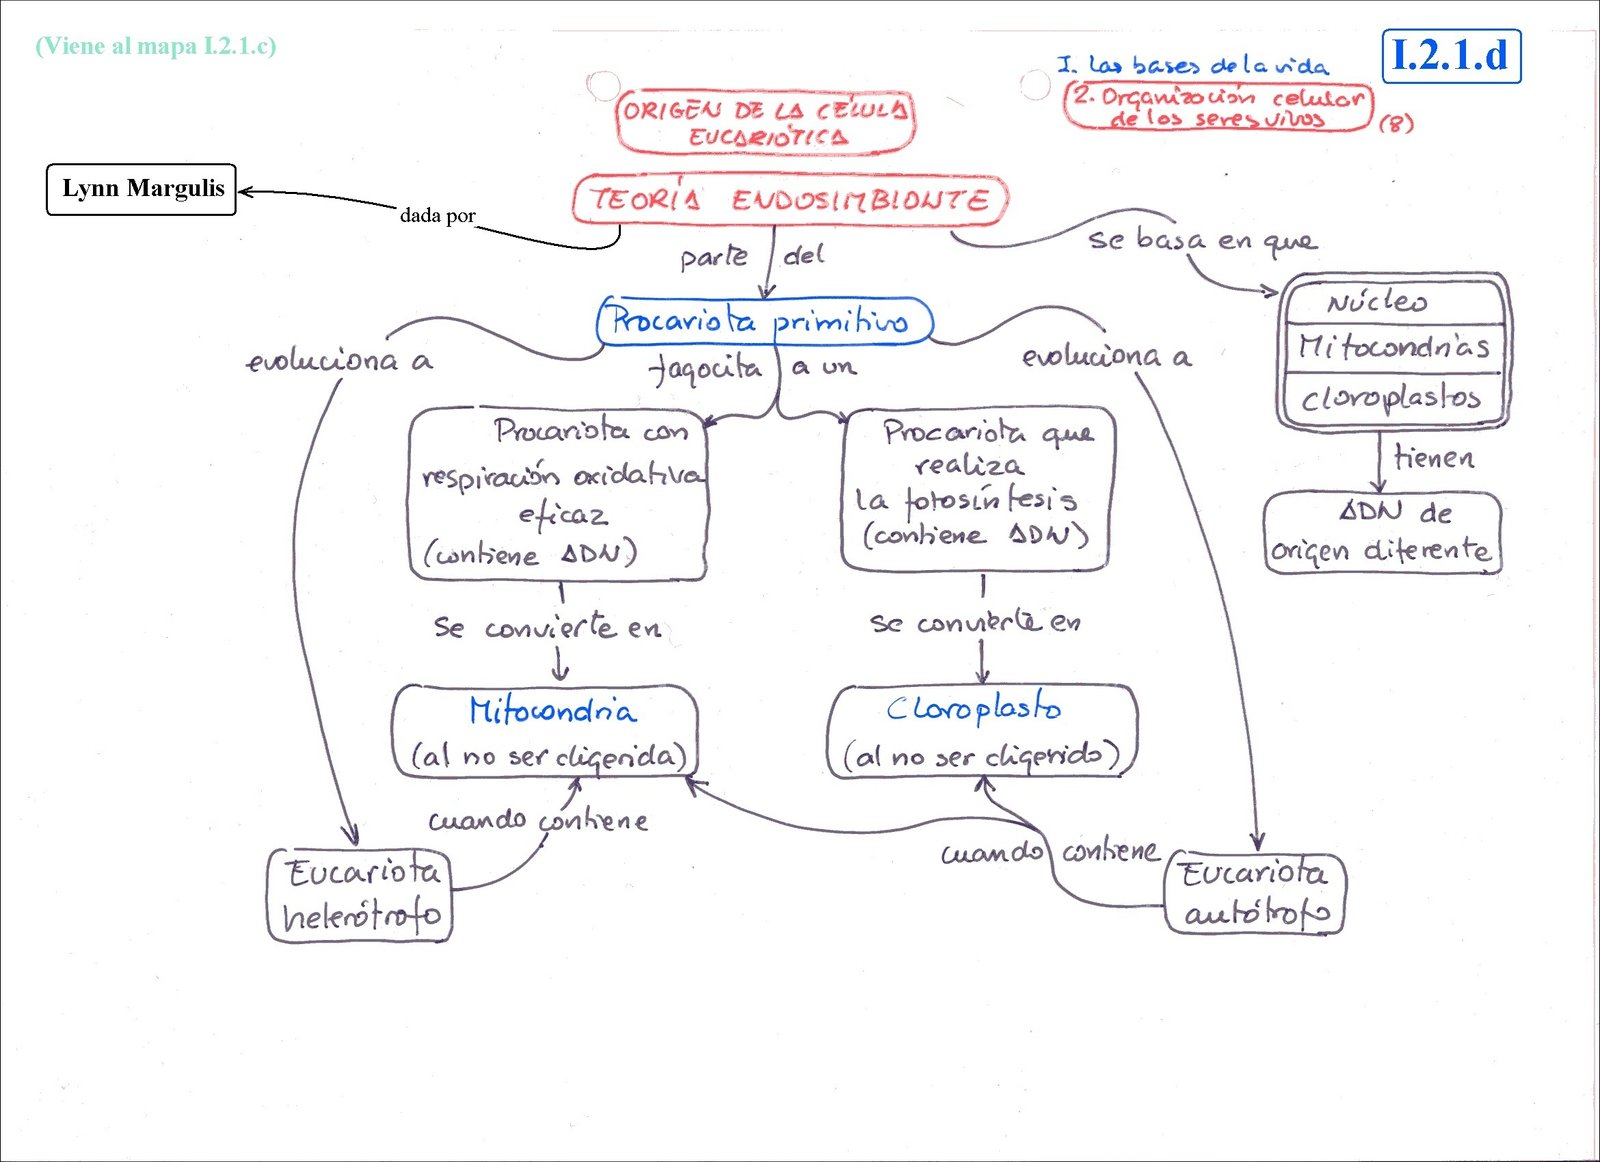 (Viene al mapa I.2.1.c)
I.2.1.d
I. Las bases de la vida
2. Organización celular
de los seres vivos
(8)
ORIGEN DE LA CÉLULA
EUCARIÓTICA
Lynn Margulis
dada por
TEORÍA ENDOSIMBIONTE
parte del
se basa en que
Procariota primitivo
Núcleo
Mitocondrias
Cloroplastos
evoluciona a
fagocita a un
evoluciona a
tienen
ADN de
origen diferente
Procariota con
respiración oxidativa
eficaz
(contiene ADN)
Procariota que
realiza
la fotosíntesis
(contiene ADN)
se convierte en
se convierte en
Mitocondria
(al no ser digerida)
Cloroplasto
(al no ser digerido)
cuando contiene
cuando contiene
Eucariota
heterótrofo
Eucariota
autótrofo